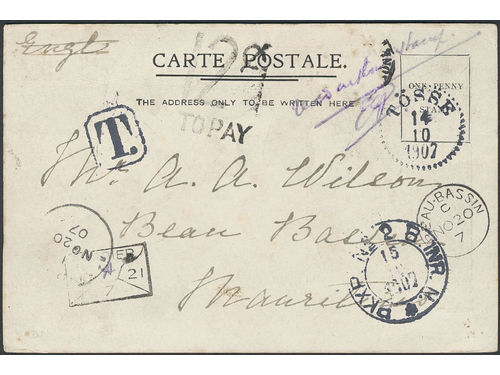 Engl
12c
CARTE POSTALE.
ONE PENNY
STAMP
THE ADDRESS ONLY TO BE WRITTEN HERE
TO PAY
TÖSSE
14
10
1907
T.
Mr. A. A. Wilson
Beau Bassin
Mauritius
BEAU-BASSIN
C
NO 20
7
NO 20
07
21
7
PKXP. No 2 B INR. N.
15
1907